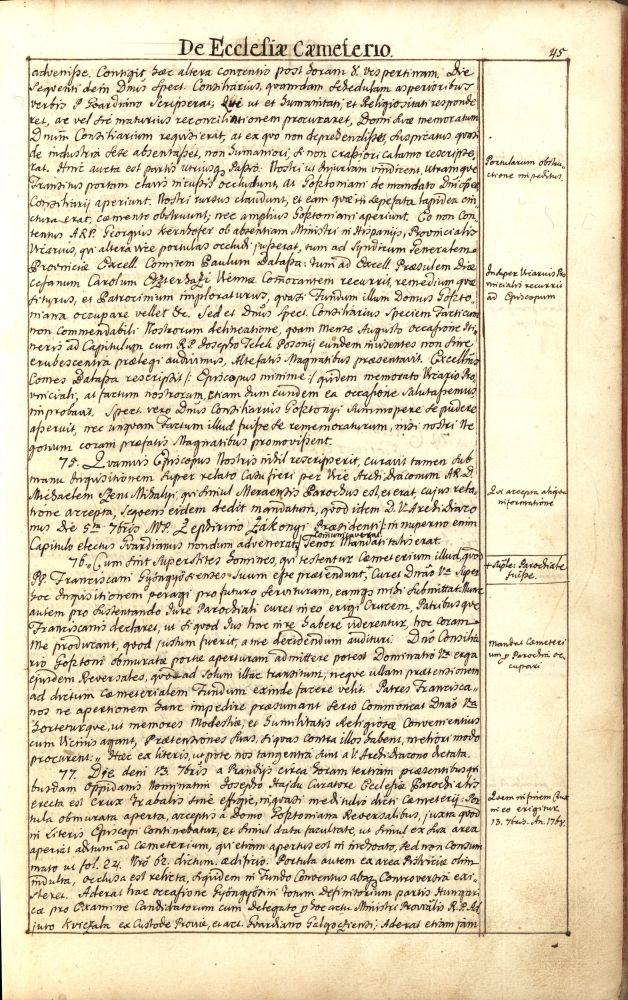 De Ecclesiæ Cæmeterio.
45
advenisse. Contigit hæc altera contentis post horam 8. vespertinam. Die
sequenti dein Dnus Spect. Consiliarius, quamdam schedulam asperioribus
verbis P. Guardiano scripserat; qui ut et humanitati, et Religiositati responde
ret, ac vel sic maturius reconciliationem procuraret, Domi suæ memoratum
Dnum Consiliarium requisierat, at ex quo non deprehendisset, suspicatus quasi
de industria sese absentasset, non humaniori, & non crassiori calamo rescripse,
rat. Hinc aucta est partis utriusq Passio. Nostri ut injuriam vindicent, utramque
Transitus portam clavis incussis occludunt, at Gosztoniani de mandato Dni Spect.
Consiliarij aperiunt. Nostri rursus claudunt, et eam quæ in sepefata lapidea cin,
ctura erat, cæmento obstruunt; nec amplius Gosztoniani aperiunt. Eo non con,
tentus A.R.P. Georgius Kernhofer ob absentiam Ministri in Hispanijs, Provincialis
Vicarius, qui altera vice portulas occludi jusserat, tum ad Syndicum Generalem
Provinciæ Excell. Comitem Paulum Balassa: tum ad Excell. Præsulem Diæ
cesanum Carolum Eszterhazi Viennæ comorantem recurrit, remedium quæ
siturus, et Patrocinium imploraturus, quasi Fundum illum Domus Goszto,
niana occupare vellet &c. Sed et Dnus Spect. Consiliarius Speciem Facti cum
non commendabili Nostrorum delineatione, quam Mense Augusto occasione Iti,
neris ad Capitulum cum R.P. Josepho Telek Posonij eundem invisentes non sine
erubescentia prælegi audivimus, Altefatis Magnatibus præsentavit. Excellmus
Comes Balassa rescripsit /: Episcopus minime :/ quidem memorato Vicario Pro,
vinciali, at factum nostrorum, Etiam dum eundem ea occasione salutassemus
improbavit. Spect. vero Dnus Consiliarius Gosztonyi summopere se pudere
asseruit, nec unquam Factum illud fuisse se rememoraturum, nisi nostri Ne
gotium coram præfatis Magnatibus promovissent.
75. Quamvis Episcopus Nostris nihil rescripserit, curavit tamen sub
manu Inquisitionem super relato Casu fieri per Vice Archi-Diaconum A.R.D.
Michaelem Szent Mihalyi, qui simul Meraensis Parochus est, et erat, cujus rela,
tione accepta, sequens eidem dedit mandatum, quod idem D. V. Archi-Diaco
nus Die 5ta 7bris M.V.P. Zephirino Zákonyi Præsidenti /: in nuperno enim
Capitulo electus Guardianus nondum advenerat :/ communicaverat. Tenor Mandati talis erat.
76. Cum sint superstites homines, qui testentur cæmeterium illud, quod
PP. Franciscani Gyöngyösienses suum esse prætendunt, Curet Dnao Vra super
hoc Inquisitionem peragi pro futuro servituram, eamq mihi submittat. Nunc
autem pro sustentando Jure Parochiali curet in eo erigi Crucem, Patribusque
Franciscanis declaret, ut si quod Jus hac in re habere viderentur, hoc coram
Me producant, quod justum fuerit, a me decidendum audituri. Dno Consilia
rio Gosztoni obmuratæ portæ aperturam admittere potest Dominatio Vra erga
ejusdem Reversales, quod ad solum illac transitum, neque ullam prætensionem
ad dictum cæmeterialem Fundum exinde facere velit. Patres Francisca,,
nos ne apertionem hanc impedire præsumant serio Commoneat Dnao Vra
horteturque, ut memores Modestiæ, et Humilitatis Religiosæ Convenientius
cum Vicinis agant, Prætensiones suas, si quas contra illos habent, meliori modo
procurent. Hæc ex literis, ut pote nos tangentia sunt a V. Archi Diacono dictata.
77. Die dein 13. 7bris a Prandijs circa horam tertiam præsentibus qui
busdam Oppidanis nominatim Josepho Hajdu Curatore Ecclesiæ Parochialis
erecta est crux trabalis sine effigie, in quasi meditulio dicti Cæmeterij: Por
tula obmurata aperta, acceptis a Domo Gosztoniana Reversalibus, juxta quod
in Literis Episcopi continebatur, et simul data facultate, ut simul ex sua area
aperiat aditum ad cæmeterium, qui etiam apertus est in inchoato, sed non consum
mato ut fol. 24. Nro 62. dictum ædificio. Portula autem ex area Pistrinæ olim
induta, occlusa est relicta, siquidem in Fundo Conventus absq Controversia exi,
steret. Aderat hac occasione Gyöngyösini totum Definitorium partis Hungari
cæ pro Examine Candidatorum cum Delegato p hoc actu Ministri Provlis R.P. Ad
juto Kviczala ex Custode Provæ, et act. Guardiano Galgocziensi; Aderat etiam jam
Portularum obstru,
ctione impeditus.
Insuper Vicarius Pro
vincialis recurrit
ad Episcopum
Qui accepta aliqua
informatione
+ suple: Parochiale
fuisse.
Mandat Cæmeteri
um p Parochū oc,
cupari
Quem in finem Crux
in eo erigitur
13. 7bris. An. 1764.